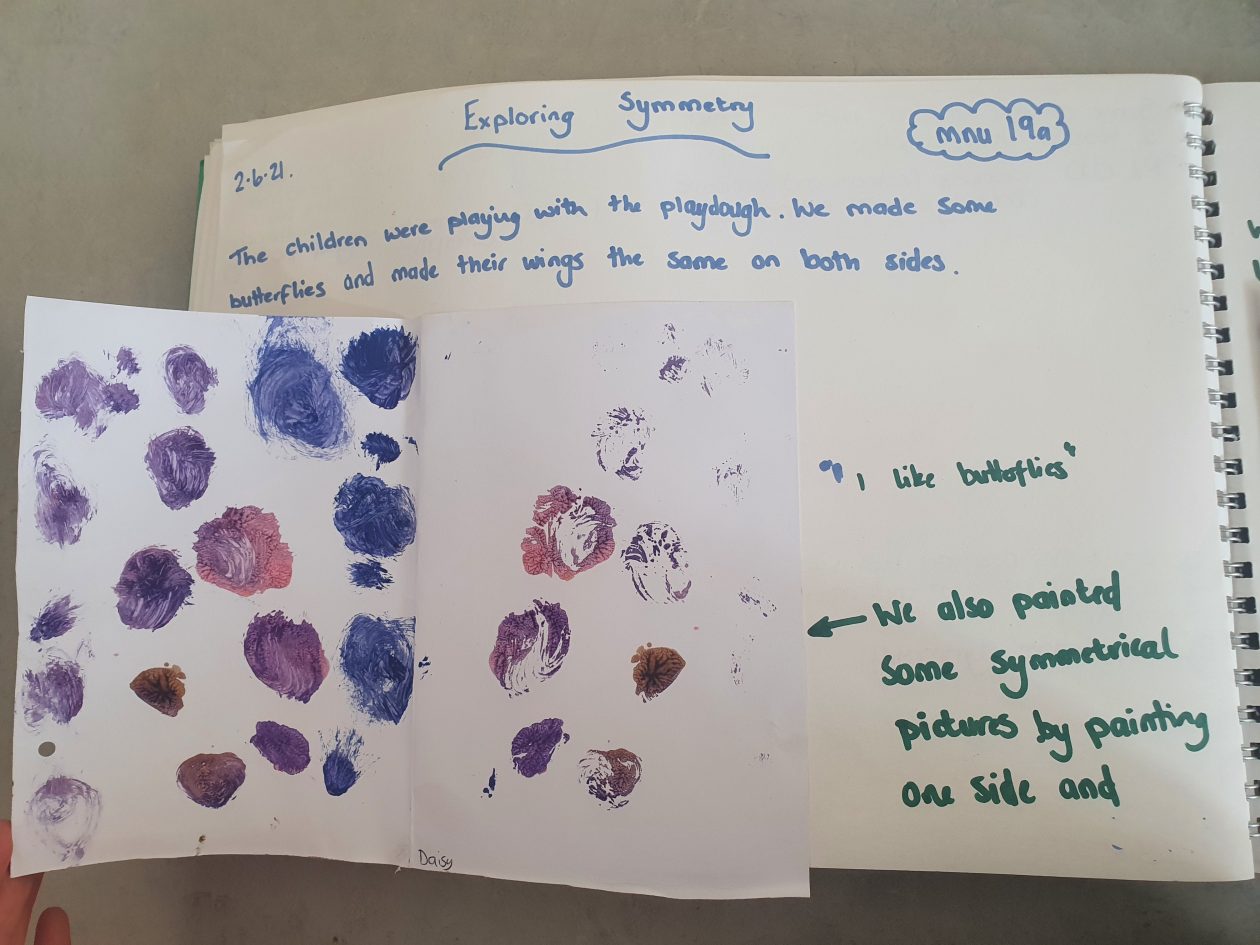 Exploring Symmetry
mnu 19a
2.6.21.
The children were playing with the playdough. We made some
butterflies and made their wings the same on both sides.
"I like butterflies"
We also painted
some symmetrical
pictures by painting
one side and
Daisy